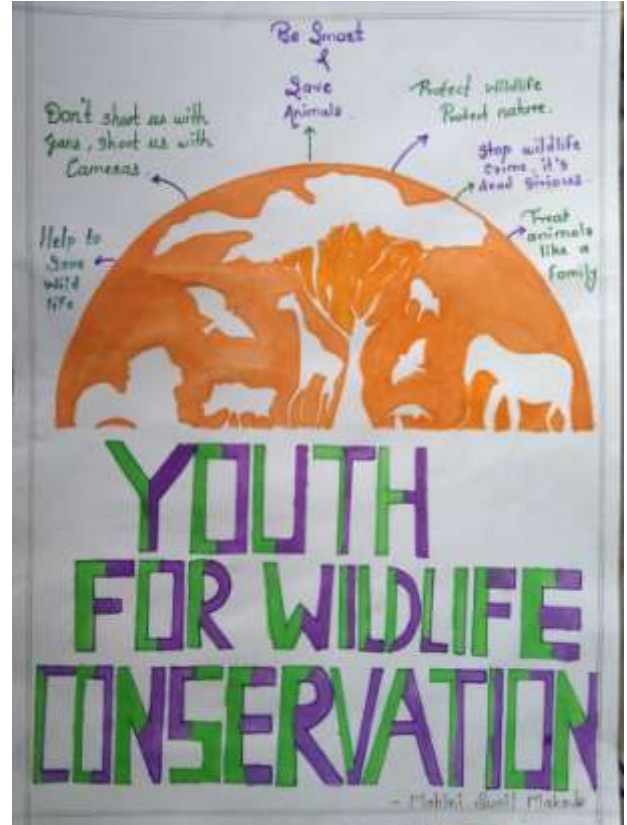 Be Smart
&
Save
Animals.
Don't shoot us with
guns, shoot us with
Cameras
Protect wildlife
Protect nature.
Stop wildlife
crime, it's
dead sirious.
Help to
Save
wild
life
Treat
animals
like a
family
YOUTH
FOR WILDLIFE
CONSERVATION
- Mohini Sunil Makode